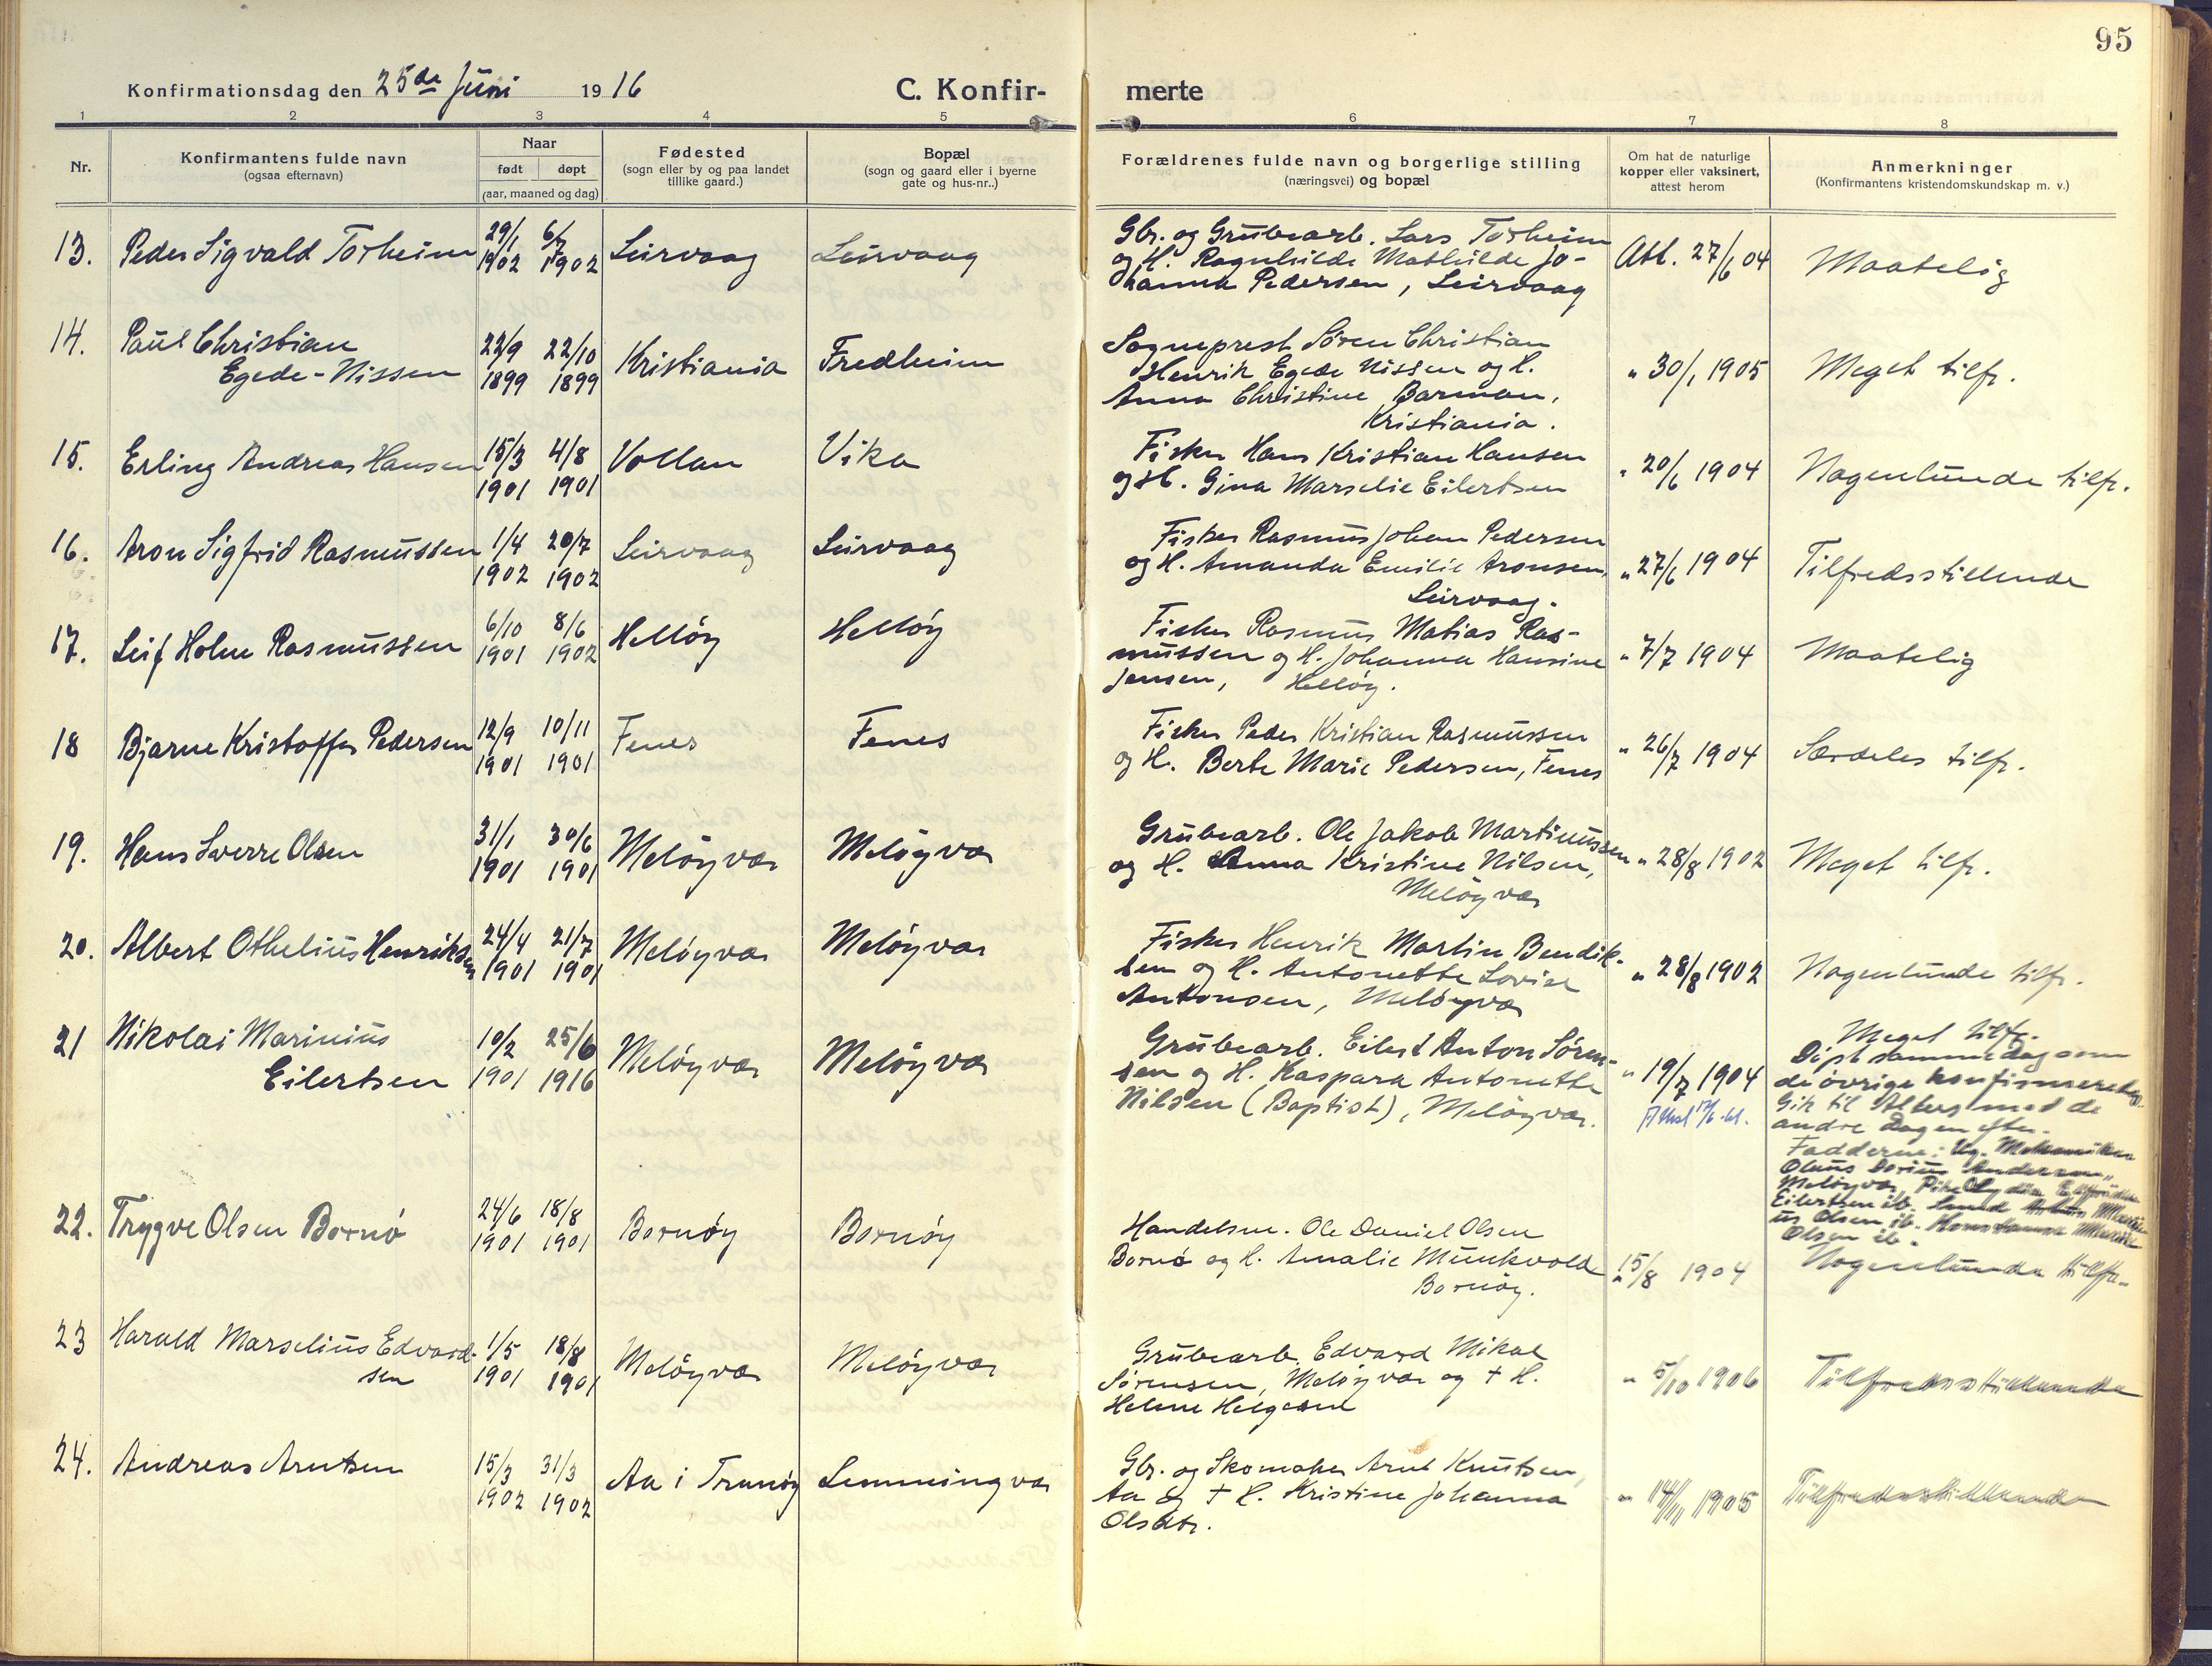 95
Konfirmationsdag den 25de Juni 1916
C. Konfir-
merte
1 2 3 4 5 6 7 8
Nr.
Konfirmantens fulde navn
(ogsaa efternavn)
Naar
født døpt
(aar, maaned og dag)
Fødested
(sogn eller by og paa landet
tillike gaard.)
Bopæl
(sogn og gaard eller i byerne
gate og hus-nr..)
Forældrenes fulde navn og borgerlige stilling
(næringsvei) og bopæl
Om hat de naturlige
kopper eller vaksinert,
attest herom
Anmerkninger
(Konfirmantens kristendomskundskap m. v.)
13. Peder Sigvald Torheim
29/1 6/7
1902 1902
Leirvaag
Leirvaag
Gbr. og Grübearb. Lars Torheim
og H. Ragnhilde Mathilde Jo-
hanna Pedersen, Leirvaag
Att. 27/6 04
Maatelig
14. Paul Christian
Egede-Nissen
22/9 22/10
1899 1899
Kristiania
Fredheim
Sogneprest Søren Christian
Henrik Egede Nissen og H.
Anna Christine Barman,
Kristiania.
" 30/1 1905
Meget tilfr.
15. Erling Andreas Hansen
15/3 4/8
1901 1901
Vollan
Vika
Fisker Hans Kristian Hansen
og H. Gina Marselie Eilertsen
" 20/6 1904
Nogenlunde tilfr.
16. Aron Sigfrid Rasmussen
1/4 20/7
1902 1902
Leirvaag
Leirvaag
Fisker Rasmus Johan Pedersen
og H. Amanda Emilie Aronsen,
Leirvaag.
" 27/6 1904
Tilfredsstillende
17. Leif Holm Rasmussen
6/10 8/6
1901 1902
Helløy
Helløy
Fisker Rasmus Matias Ras-
mussen og H. Johanna Hansine
Jensen, Helløy.
" 7/7 1904
Maatelig
18 Bjarne Kristoffer Pedersen
12/9 10/11
1901 1901
Fenes
Fenes
Fisker Peder Kristian Rasmussen
og H. Berte Marie Pedersen, Fenes
" 26/7 1904
Særdeles tilfr.
19. Hans Sverre Olsen
31/1 30/6
1901 1901
Meløyvær
Meløyvær
Grübearb. Ole Jakob Martinussen
og H. Anna Kristine Nilsen,
Meløyvær
" 28/8 1902
Meget tilfr.
20. Albert Othelius Henriksen
24/4 21/7
1901 1901
Meløyvær
Meløyvær
Fisker Henrik Martin Bendik-
sen og H. Antonette Lovise
Antonsen, Meløyvær
" 28/8 1902
Nogenlunde tilfr.
21 Nikolai Marinius
Eilertsen
10/2 25/6
1901 1916
Meløyvær
Meløyvær
Grübearb. Eilert Anton Søren-
sen og H. Kaspara Antonette
Nilsen (Baptist), Meløyvær.
" 19/7 1904
Meget tilfr.
Døpt samme dag som
de øvrige konfirmerede.
Gik til Alters med de
andre Dagen efter.
Fadderne: Ug.
Olaus Andersen,
Meløyvær, Pike
Eilertsen ib.
Olsen ib.
Olsen ib.
22. Trygve Olsen Bornø
24/6 18/8
1901 1901
Bornøy
Bornøy
Handelsm. Ole Daniel Olsen
Bornø og H. Amalie Munkvold
Bornøy.
" 15/8 1904
Nogenlunde tilfr.
23 Harald Marselius Edvard-
sen
1/5 18/8
1901 1901
Meløyvær
Meløyvær
Grübearb. Edvard Mikal
Sørensen, Meløyvær og † H.
Helene Helgesen
" 5/10 1906
Tilfredsstillende
24. Andreas Arntsen
15/3 31/3
1902 1902
Aa i Tranøy
Lemmingvær
Gbr. og Skomaker Arnt Knutsen,
Aa og † H. Kristine Johanna
Olsdtr.
" 14/11 1905
Tilfredsstillende